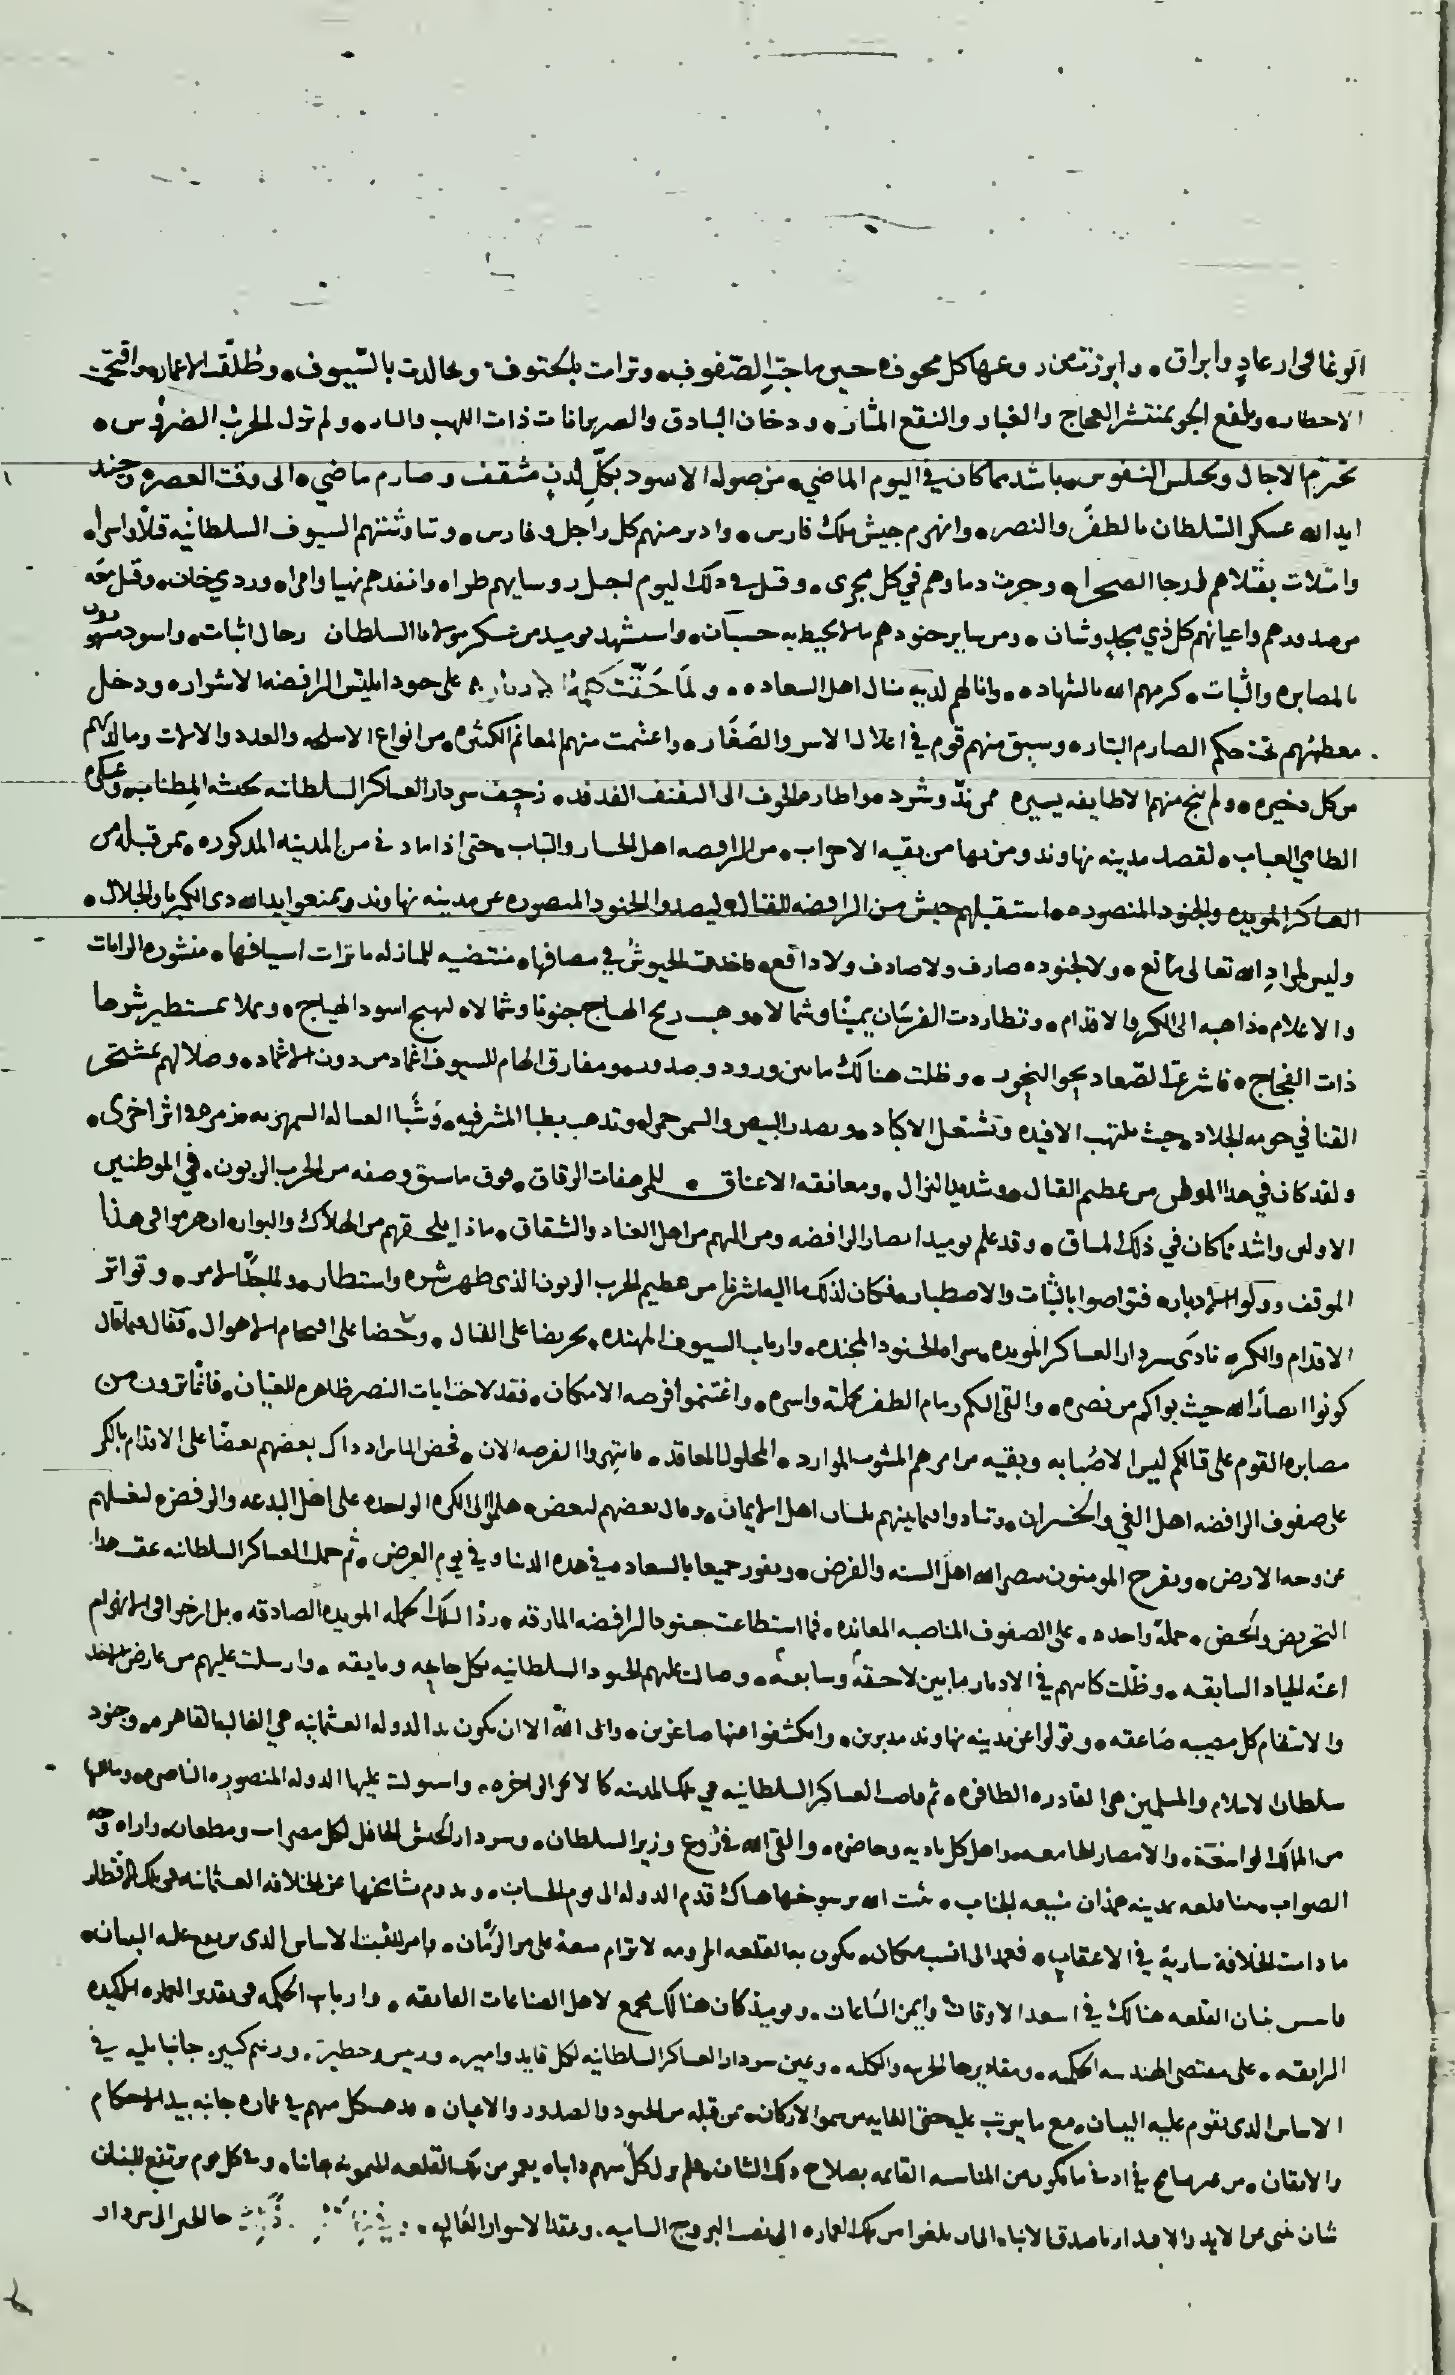 الوغا في ارعادٍ وابراق . وابرزت من وعيها كل مخوف حين ماجت الصفوف . وترامت بالحتوف وتجالدت بالسيوف . وطلقت الاعمار واقتحمت
الاخطار . وتلفع الجو بمنتشر العجاج والغبار والنقع المثار . ودخان البنادق والضربزانات ذات اللهب والنار . ولم تزل الحرب الضروس .
تخترم الاجال وتختلس النفوس . باشد مما كان في اليوم الماضي . من صولة الاسود بكل لدنٍ مثقف وصارم ماضي . الى وقت العصر . وحينئذ
ايد الله عسكر السلطان بالظفر والنصر . وانهزم جيش ملك فارس . وادبر منهم كل راجل وفارس . وتناوشتهم السيوف السلطانيه قتلاً واسرا .
وامتلات بقتلاهم ارجا الصحرا . وجرت دماوهم في كل مجرى . وقتل في ذلك اليوم اجل روسايهم طرا . وانفذهم نهيا وامرا . وردي خان . وقتل معه
من صدورهم واعيانهم كل ذي مجدٍ وشان . ومن ساير جنودهم ما لا يحيط به حسبان . واستشهد يوميذ من عسكر مولانا السلطان رجال اثبات . واسود مشهورون
بالمصابره والثبات . كرمهم الله بالشهاده . وانالهم لديه منال اهل السعاده . ولما حقت كلمة الادبار على جنود ابليس الرافضه الاشرار . ودخل
معظمهم تحت حكم الصارم البتار . وسيق منهم قوم في اغلال الاسر والصغار . واغتنمت منهم المغانم الكثيره . من انواع الاسلحه والعدد والالات وما لديهم
من كل ذخيره . ولم ينج منهم الا طايفه يسيره ممن ندّ وشرد . واطاره الخوف الى النفنف الفدفد . زحف سردار العساكر السلطانيه بجيشه المطناب . وعسكره
الطامي العباب . لقصد مدينه نهاوند ومن بها من بقيه الاحزاب . من الرافضه اهل الخسار والتباب . حتى اذا ما دنى من المدينه المذكوره . بمن قبله من
العساكر المويده والجنود المنصوره . استقبلهم جيش من الرافضه للقتال . ليصدوا الجنود المنصوره عن مدينه نهاوند ويمنعوا يد الله ذي الكبريا والجلال .
وليس لمراد الله تعالى مانع . ولا لجنوده صارف ولا صادف ولا دافع . فاخذت الجيوش في مصافها . منتضيه للمنازله ماترات اسيافها . منشوره الرايات
والاعلام . ذاهبه الى الكر والاقدام . وتطاردت الفرسان يمينًا وشمالا . وهب ريح الهياج جنوبًا وشمالا . لهيج اسود الهياج . وعلا بمستطير شرها
ذات الفجاج . فاشرعت الصعاد نحو النحور . وظلت هنالك ما بين ورود وصدور . ومفارق الهام للسيوف اغماد من دون الاغماد . وصلالهم بمشتجر
القنا في حومه الجلاد . حيث تلتهب الافيده وتشتعل الاكباد . وتصدر البيض والسمر حمرا . وتذهب بظبا المشرفيه . وشبا العساله السمهريه . زمره في اثر اخرى .
ولقد كان في هذا الموطن من عظيم القتال . وشديد النزال . ومعانقه الاعناق . للمرهفات الرقاق . فوق ما سبق وصفه من الحرب الزبون . في الموطنين
الاولى واشد مما كان في ذلك المساق . وقد علم يوميذ انصار الرافضه ومن اليهم من اهل العناد والشقاق . ماذا يلحقهم من الهلاك والبوار . ان هزموا في هذا
الموقف وولوا الادبار . فتواصوا بالثبات والاصطبار . فكان لذلك ما اليه اشرنا من عظيم الحرب الزبون الذي ظهر شره واستطار . ولما جدّ الامر . وتواتر
الاقدام والكر . نادى سردار العساكر المويده . سراه الجنود المجنده . وارباب السيوف المهنده . تحريضا على القتال . وحضا على اقتحام الاهوال . فقال فيما قال
كونوا انصار الله حيث بواكم من نصره . والقى اليكم زمام الظفر بجملته واسره . واغتنموا فرصه الامكان . فقد لاحت ايات النصر ظاهره للعيان . فما ترون من
مصابره القوم على قتالكم ليس الا صبابه وبقيه من امرهم المشوب الموارد . المحلول المعاقد . فانتهزوا الفرصه الان . فحض الناس اذ ذاك بعضهم بعضًا على الاقدام بالكر
على صفوف الرافضه اهل الغي والخسران . وتنادوا فيما بينهم بلسان اهل الايمان . وقال بعضهم لبعض . هلموا الى الكره الواحده على اهل البدعه والرفض . لنغسلهم
عن وجه الارض . ويفرح المومنون بنصر الله اهل السنه والفرض . ونفوز جميعا بالسعاده في هذه الدنيا وفي يوم العرض . ثم حمل العساكر السلطانيه عقب هذا
التحريض والحض . حملة واحده . على الصفوف المناصبه المعانده . فما استطاعت جنود الرافضه المارقه . رد تلك الحمله المويده الصادقه . بل ارخوا في الانهزام
اعنه الجياد السابقه . وظلت كماتهم في الادبار ما بين لاحقةٍ وسابقة . وصالت عليهم الجنود السلطانيه بكل حاجه ومايقه . وارسلت عليهم من عارض الاخذ
والانتقام كل مصيبه صاعقه . وتولوا عن مدينه نهاوند مدبرين . وانكشفوا عنها صاغرين . وابى الله الا ان يكون يد الدوله العثمانيه هي الغالبه القاهره . وجنود
سلطان الاسلام والمسلمين هي القادره الظافره . ثم فاضت العساكر السلطانيه في تلك المدينه كالابحر الزاخره . واستولت عليها الدوله المنصوره الناصره . وما اليها
من الممالك الواسعة . والامصار الجامعه . واهل كل باديه وحاضره . والقى الله في روع وزير السلطان . وسردار الجيش الحافل لكل مضراب ومطعان . واراه وجه
الصواب . بنا قلعه بمدينه همذان منيعه الجناب . يثبت الله برسوخها هناك قدم الدوله الى يوم الحساب . ويدوم مشايخها عز الخلافه العثمانيه في تلك الاقطار
ما دامت الخلافة سارية في الاعقاب . فعمد الى انسب مكان . يكون به القلعه المرومه لا ترام منعة على مر الزمان . وامر بتثبيت الاساس الذي يرفع عليه البنيان .
فاسس بنيان القلعه هنالك في اسعد الاوقات وايمن الساعات . ويوميذ كان هنالك مجمع لاهل الصناعات الفايقه . وارباب الحكمه في تقدير العماره الاكيده
الرايقه . على مقتضى الهندسه الحكميه . ومقاديرها الجزييه والكليه . وعين سردار العساكر السلطانيه لكل قايد وامير . وريس وخطير . وزعيم كبير . جانبا يليه في
الاساس الذي يقوم عليه البنيان . مع ما يترتب عليه حتى الغايه من سمو الاركان . بمن قبله من الجنود والصدور والاعيان . فذهب كل منهم في عماره جانبه بيد الاحكام
والاتقان . من غير تسامح في ادنى ما يكون من المناسبه القايمه بصلاح ذلك الشان . فلم يزل كل منهم دايبا . يعمر من تلك القلعه الميمونه جانبا . وفي كل يوم يرتفع للبنيان
شان ينبي عن الايد والاقتدار ما صدق الانباء . الى ان بلغوا من تلك العماره الى نصب البروج الساميه . وعقد الاسوار العاليه . جا الخبر الى سردار